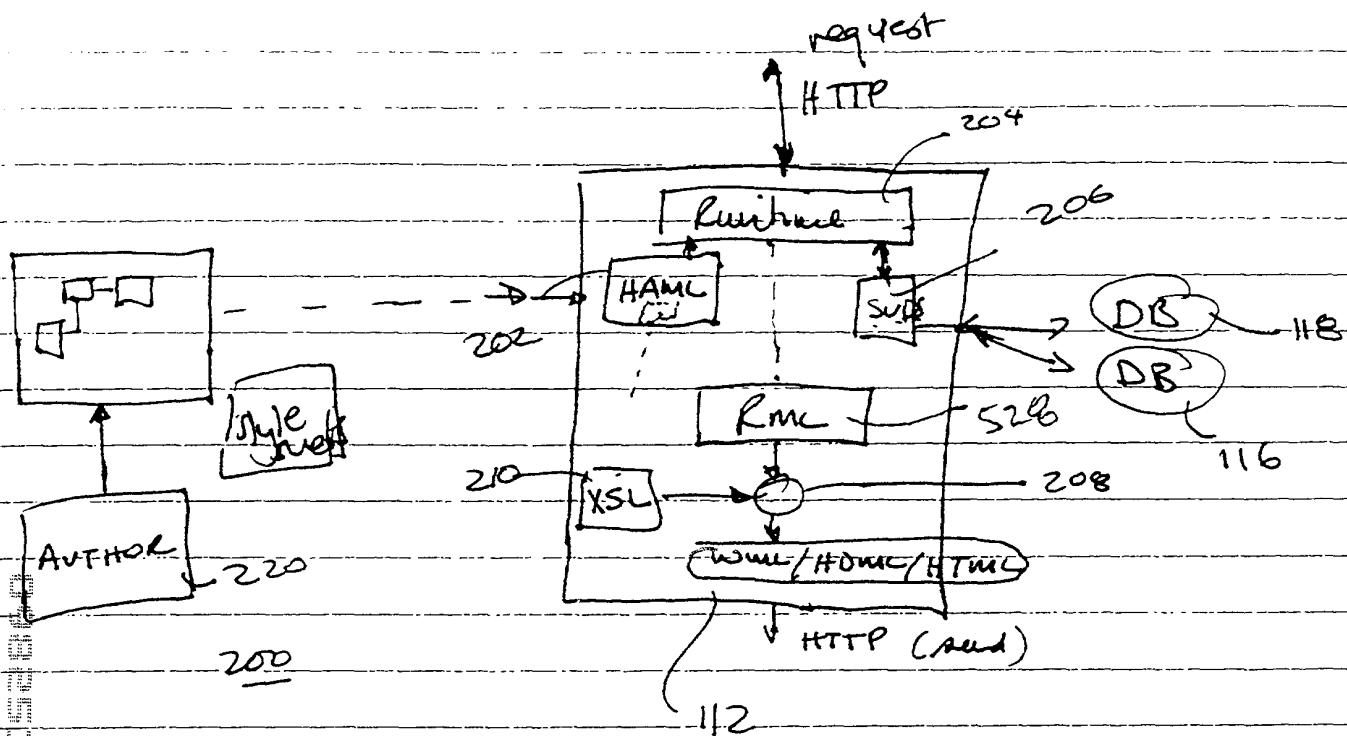 request
HTTP
204
Runtime
206
HAML
202
DB
118
DB
116
Style
RML
528
210
XSL
208
AUTHOR
220
WML/HDML/HTML
HTTP (send)
200
112